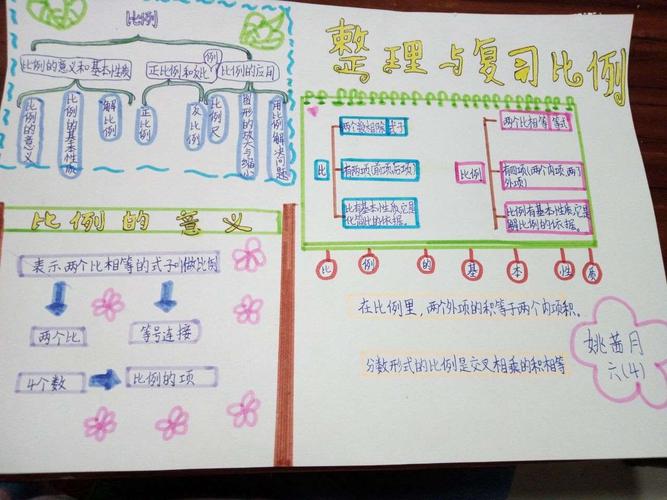 比例
比例的意义和基本性质
正比例和反比
例
比例的应用
比例的意义
比例的基本性质
解比例
正比例
反比例
比例尺
图形的放大与缩小
用比例解决问题
整理与复习比例
两个数相除 式子
比
有两项(前项后项)
比有基本性质,它是
化简比的依据。
两个比相等 等式
比例
有四项(两个内项,两个
外项)
比例有基本性质,它是
解比例的依据。
比例的基本性质
在比例里,两个外项的积等于两个内项积。
分数形式的比例是交叉相乘的积相等
姚茜月
六(4)
比例的意义
表示两个比相等的式子叫做比例
两个比
等号连接
4个数
比例的项